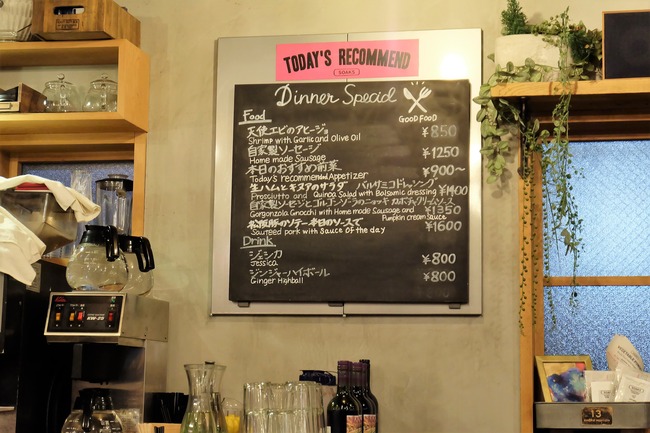 TODAY'S RECOMMEND
Dinner Special
GOOD FOOD
Food
天使エビのアヒージョ ¥850
Shrimp with Garlic and Olive Oil
自家製ソーセージ ¥1250
Home made Sausage
本日のおすすめ前菜 ¥900〜
Today's recommend Appetizer
生ハムとキヌアのサラダ バルサミコドレッシング ¥1400
Prosciutto and Quinoa Salad with Balsamic dressing
自家製ソーセージとゴルゴンゾーラのニョッキ ¥1350
Gorgonzola Gnocchi with Home made Sausage and Pumpkin cream Sauce
豚のソテー 本日のソースで ¥1600
Sauteed pork with Sauce of the day
Drink
ジェシカ ¥800
Jessica
ジンジャーハイボール ¥800
Ginger Highball
KW-25
13